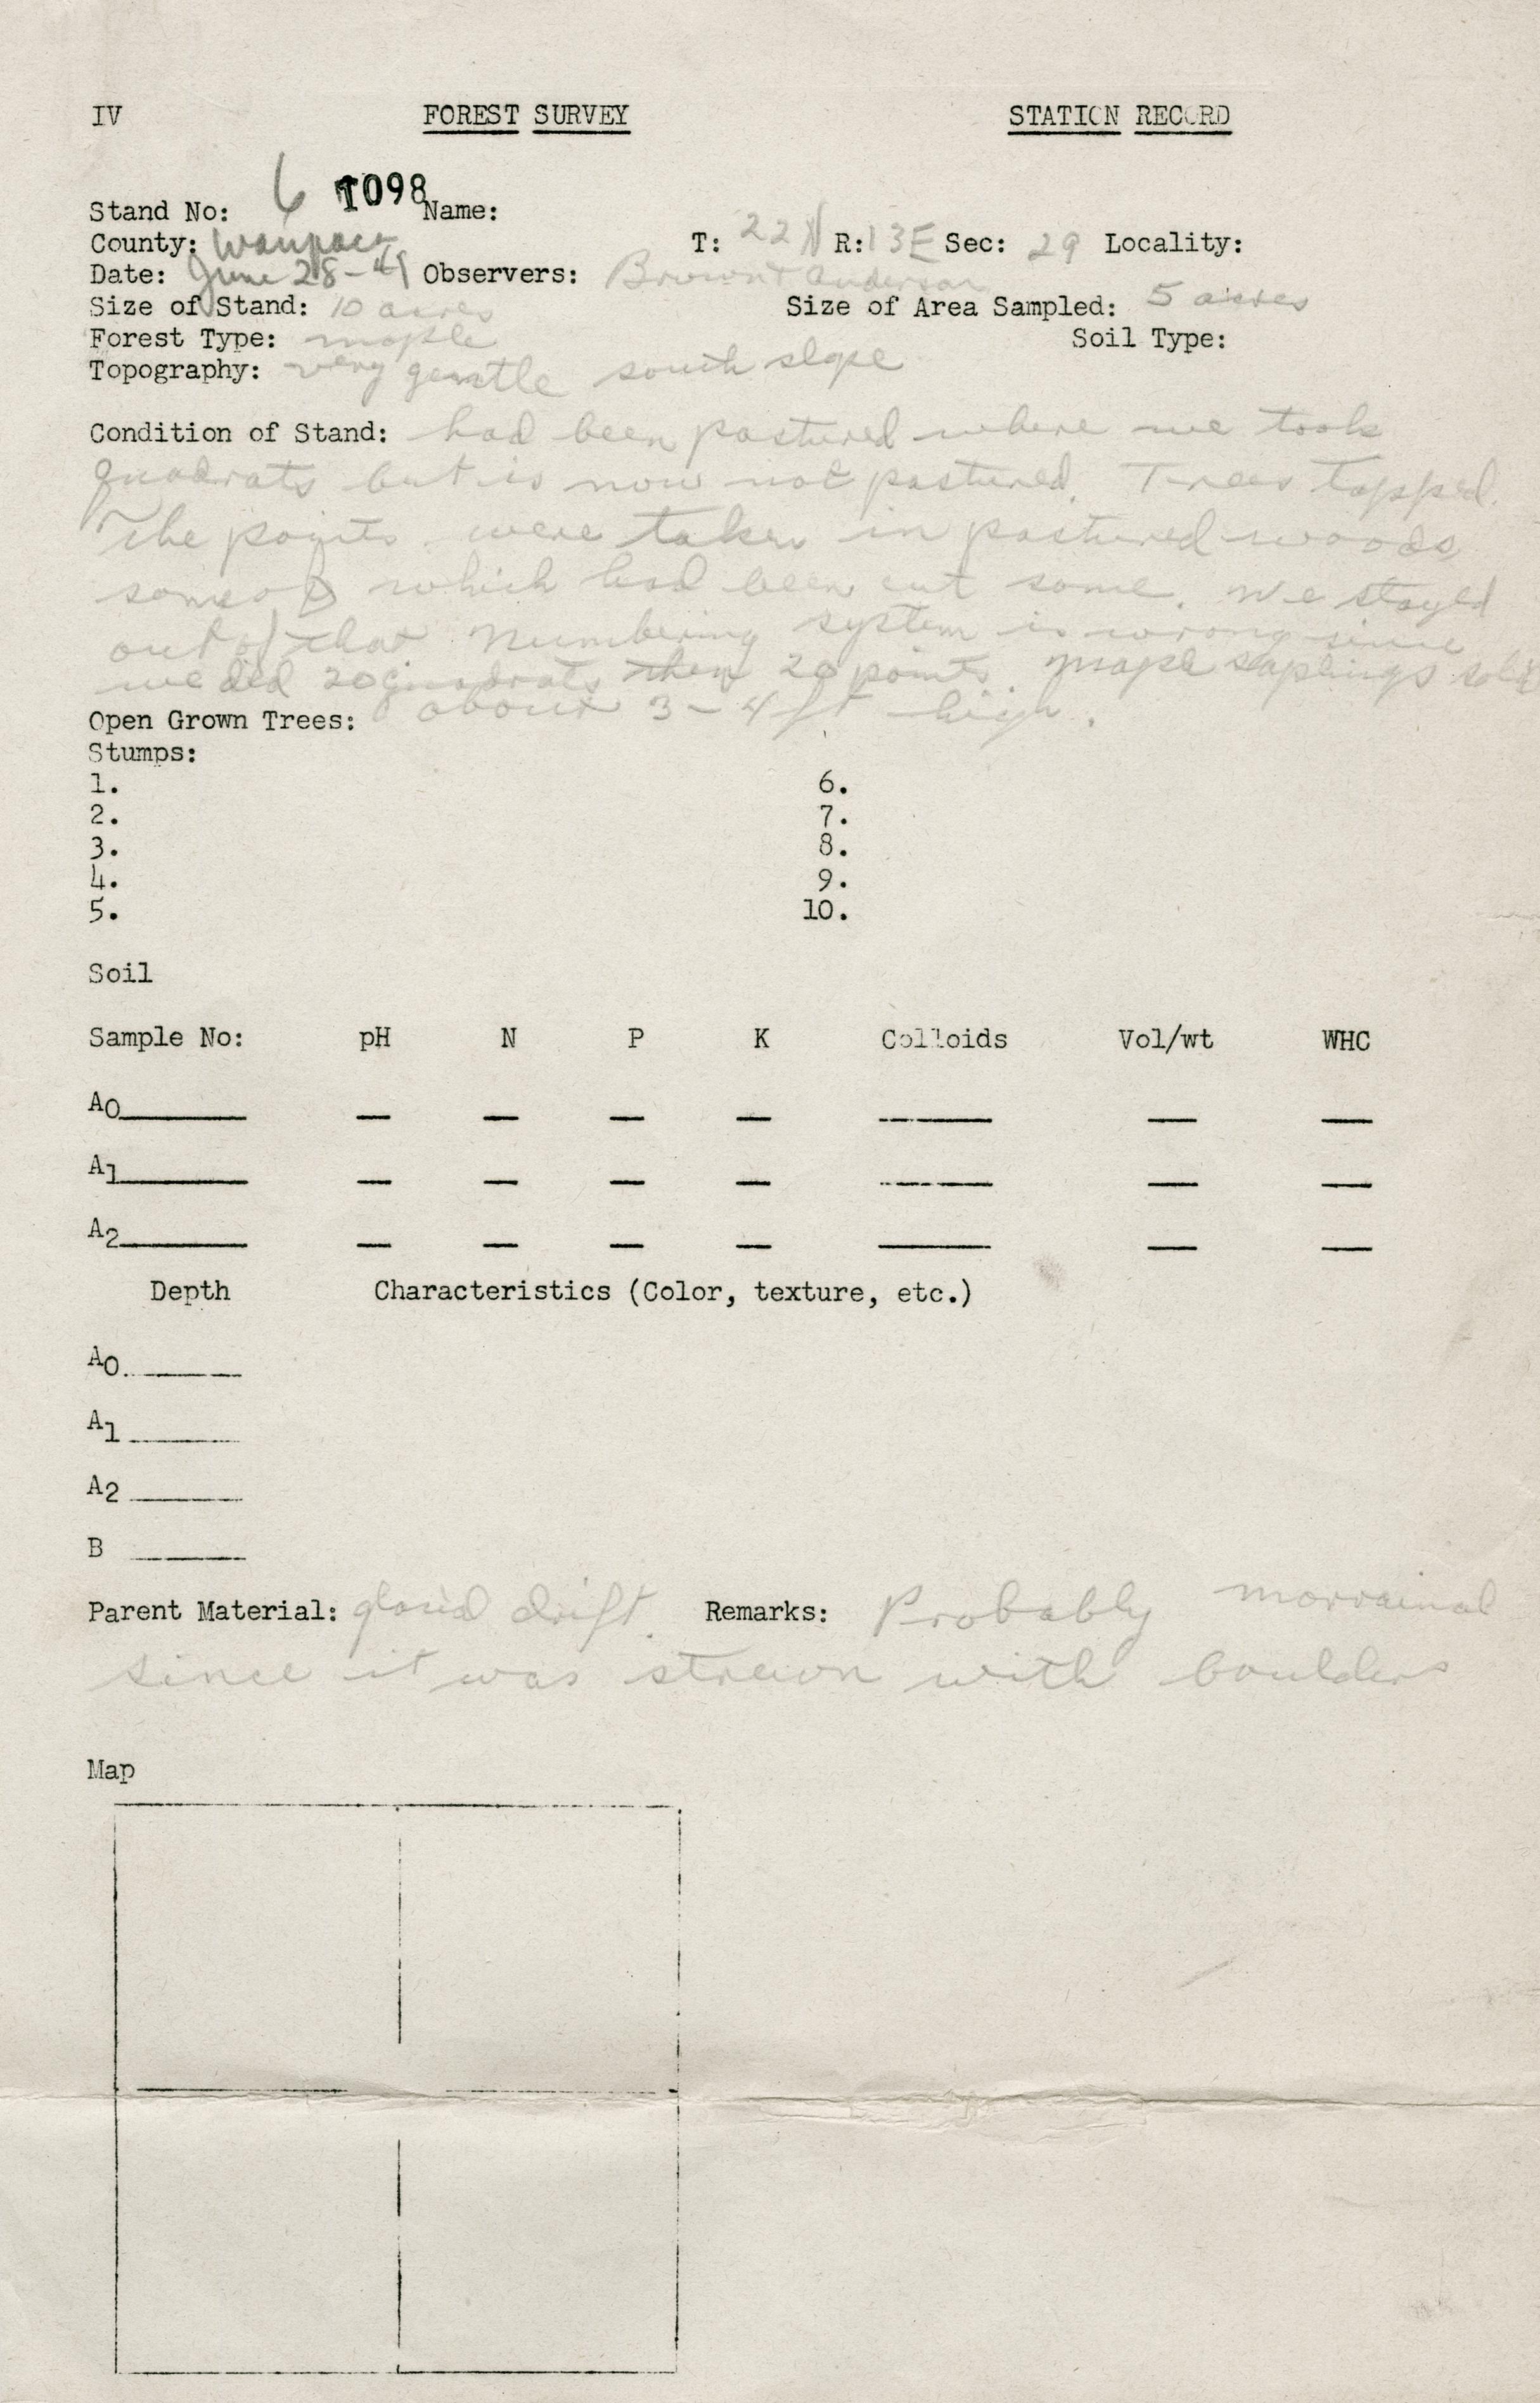 IV FOREST SURVEY STATION RECORD
Stand No: 6 1098 Name:
County: Waupaca T: 22N R: 13E Sec: 29 Locality:
Date: June 28-49 Observers: Brown + Anderson
Size of Stand: 10 acres Size of Area Sampled: 5 acres
Forest Type: maple Soil Type:
Topography: very gentle south slope
Condition of Stand: had been pastured where we took
quadrats but is now not pastured. Trees tapped.
The points were taken in pastured woods
some of which had been cut some. We stayed
out of that. Numbering system is wrong since
we did 20 quadrats then 20 points. Maple saplings solid
about 3-4 ft high.
Open Grown Trees:
Stumps:
1. 6.
2. 7.
3. 8.
4. 9.
5. 10.
Soil
Sample No: pH N P K Colloids Vol/wt WHC
A0
A1
A2
Depth Characteristics (Color, texture, etc.)
A0
A1
A2
B
Parent Material: glacial drift. Remarks: Probably morrainal
since it was strewn with boulders
Map